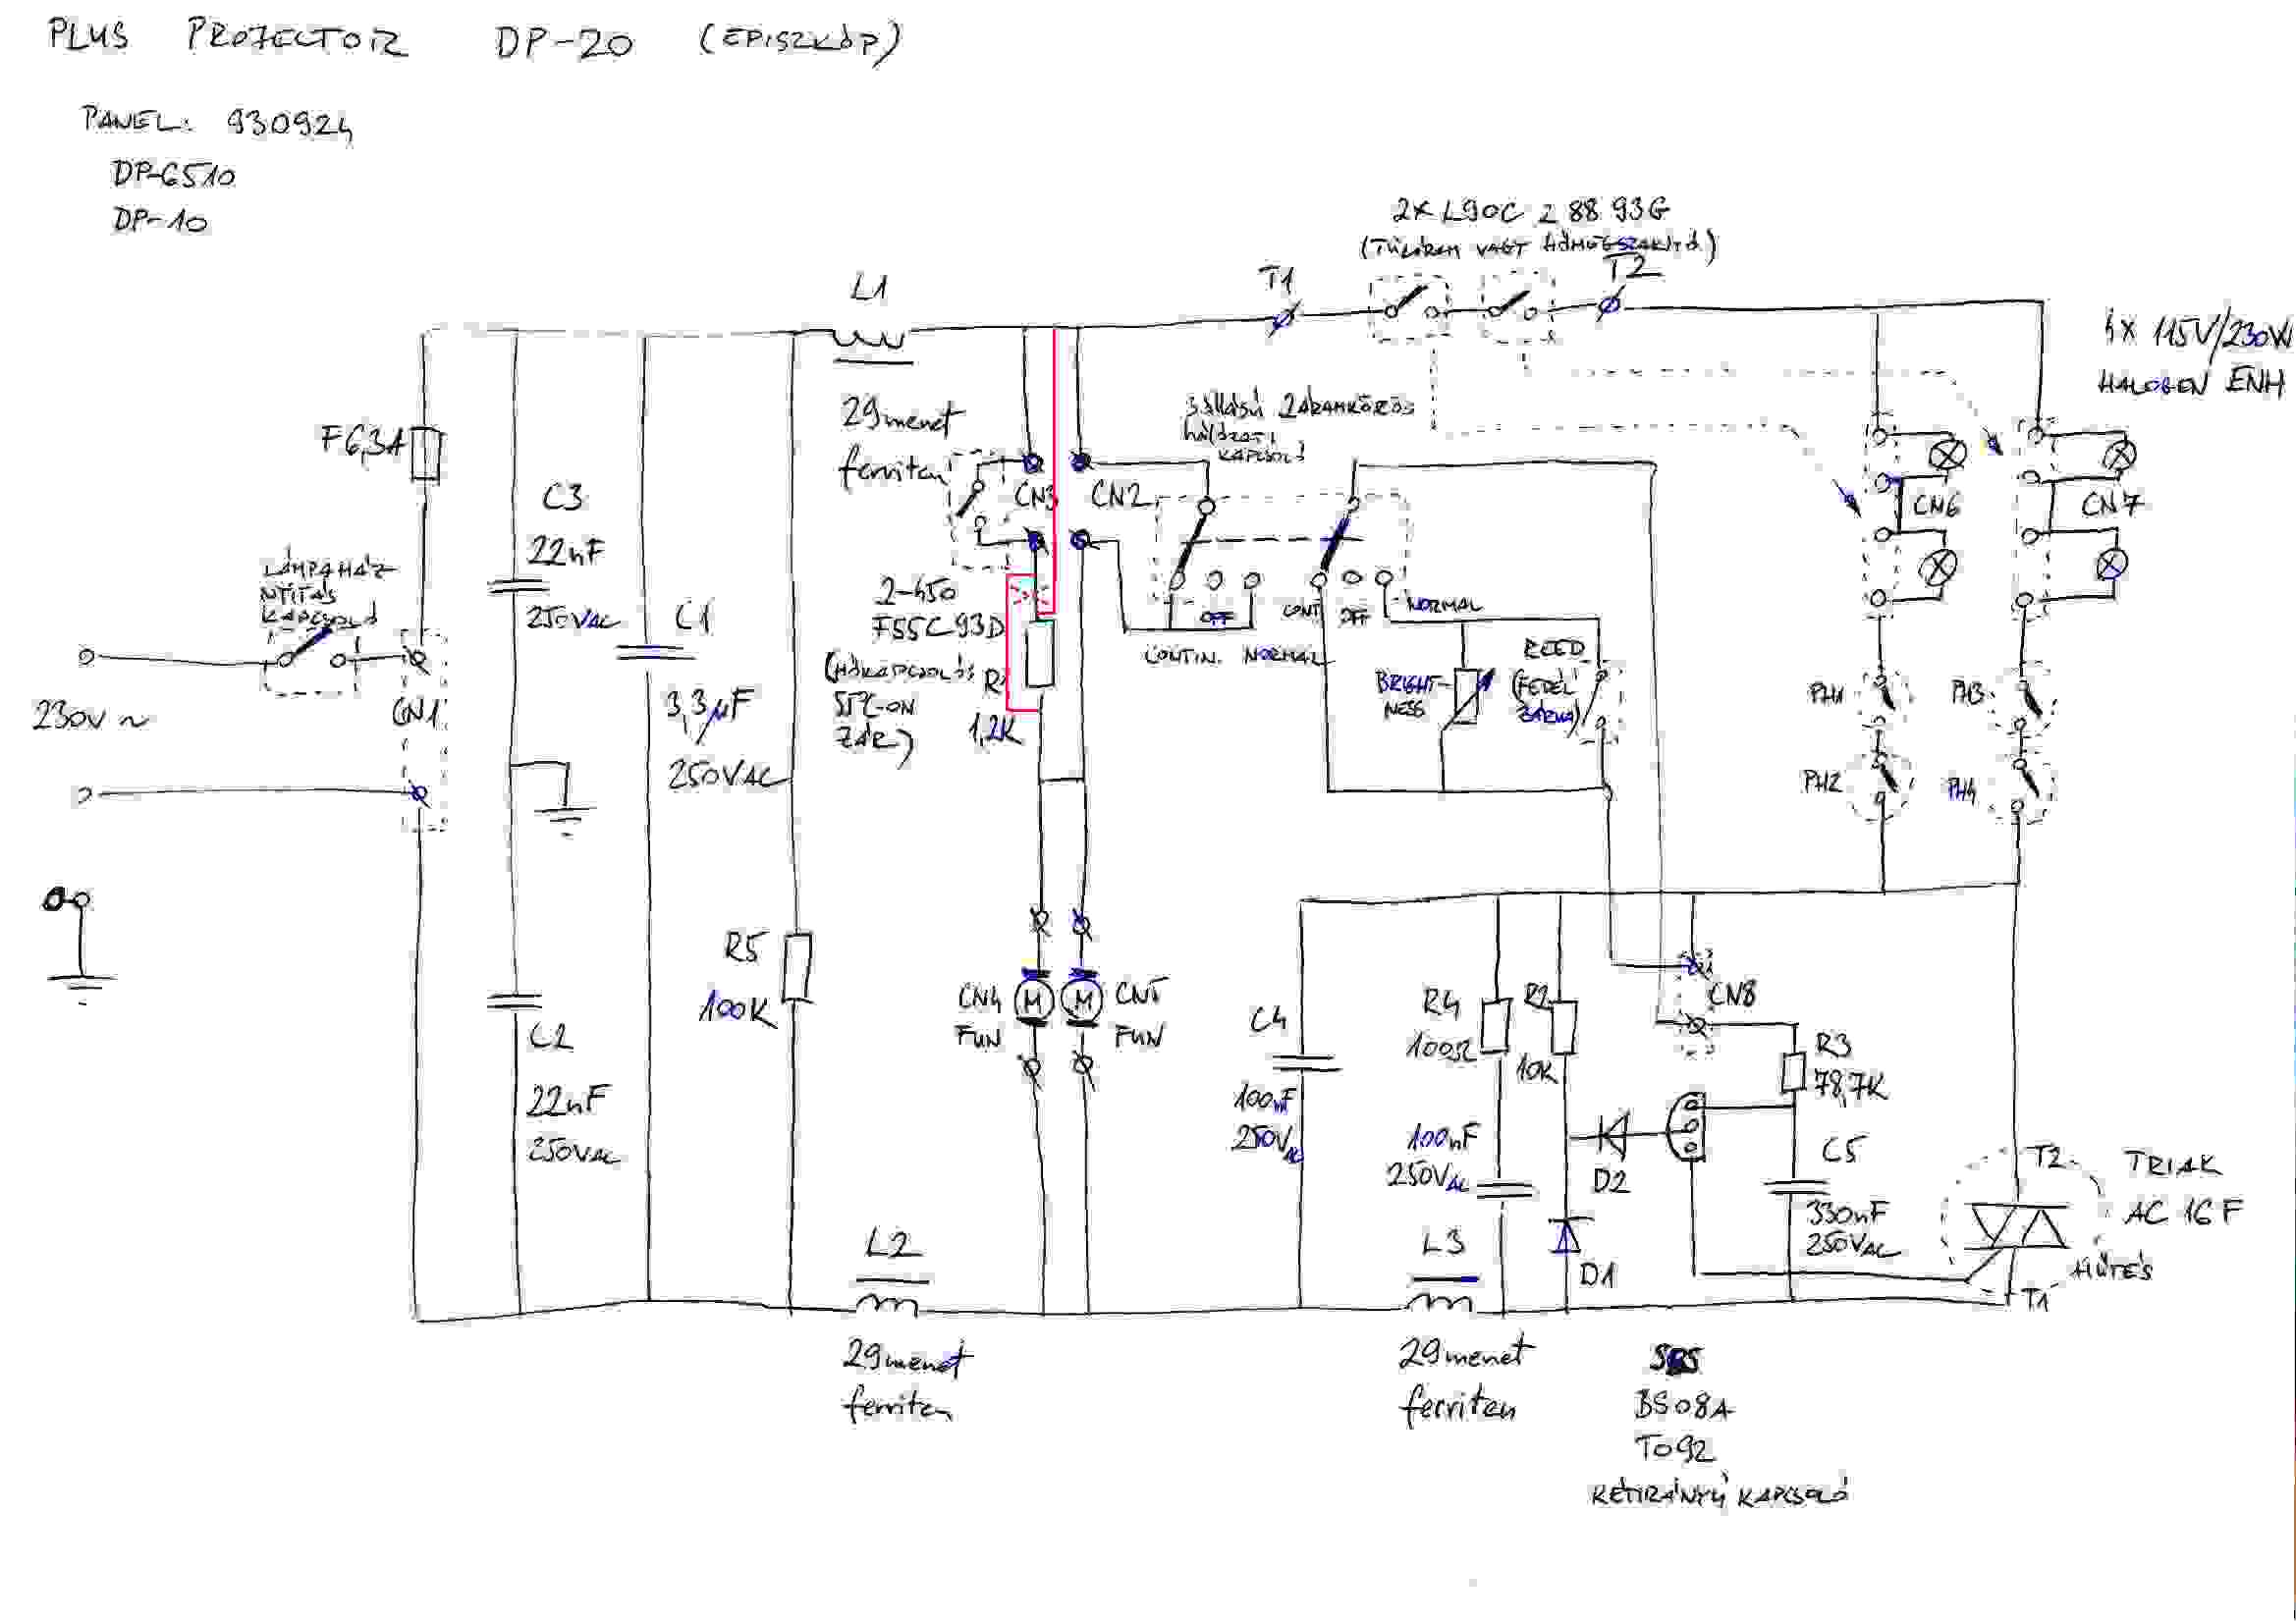 PLUS PROJECTOR DP-20 (EPISZKÓP)
PANEL: 930924
DP-6510
DP-10
2X L90C 288 93G
(TÚLÁRAM VAGY HŐMEGSZAKÍTÓ)
T1
T2
L1
29menet
ferriten
4X 115V/230W
HALOGEN ENH
F6,3A
3 állású 2ÁRAMKÖRÖS
hálózati
KAPCSOLÓ
C3
22nF
250VAC
CN3
CN2
CN6
CN7
LÁMPAHÁZ
NYITÁS
KAPCSOLÓ
C1
3,3µF
250VAC
2-450
F55C 93D
(HŐKAPCSOLÓ
55°C-ON
ZÁR)
R
1,2K
OFF
CONT.
OFF
NORMAL
CONTIN. NORMAL
BRIGHT-
NESS
REED
(FEDÉL
ZÁRVA)
PH1
PH3
PH2
PH4
230V ~
CN1
R5
100K
CN4
FUN
M
M
CN5
FUN
C4
100nF
250VAC
R4
100Ω
R2
10K
CN8
R3
78,7K
C2
22nF
250VAC
100nF
250VAC
D2
C5
330nF
250VAC
T2
TRIAK
AC 16 F
HŰTÉS
T1
L2
29menet
ferriten
L3
29menet
ferriten
D1
SBS
BS08A
TO92
KÉTIRÁNYÚ KAPCSOLÓ